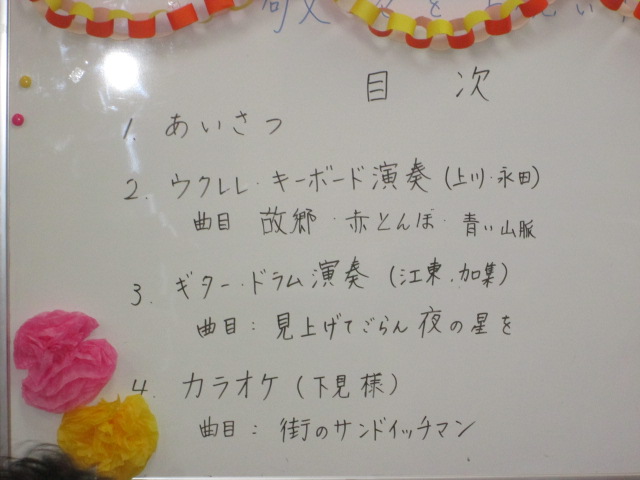 目 次
1. あいさつ
2. ウクレレ・キーボード演奏(上川・永田)
曲目 故郷・赤とんぼ・青い山脈
3. ギター・ドラム演奏(江東、加集)
曲目:見上げてごらん夜の星を
4. カラオケ(下見様)
曲目:街のサンドイッチマン